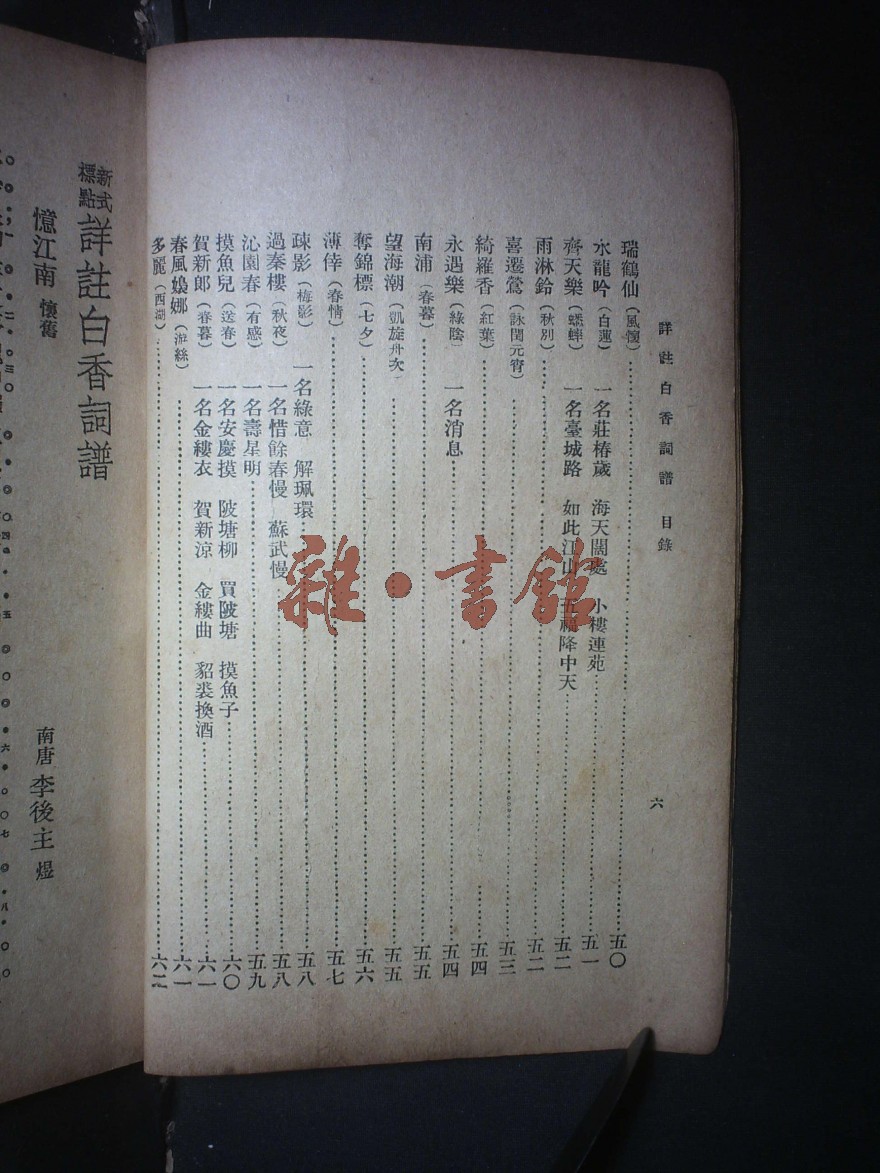 詳註白香詞譜 目錄 六
瑞鶴仙(風懷)五〇
水龍吟(白蓮)一名莊椿歲 海天闊處 小樓連苑五一
齊天樂(蟋蟀)一名臺城路 如此江山 五福降中天五二
雨淋鈴(秋別)五二
喜遷鶯(詠閏元宵)五三
綺羅香(紅葉)五四
永遇樂(綠陰)一名消息五四
南浦(春暮)五五
望海潮(凱旋舟次)五五
奪錦標(七夕)五六
薄倖(春情)五七
疎影(梅影)一名綠意 解珮環五八
過秦樓(秋夜)一名惜餘春慢 蘇武慢五八
沁園春(有感)一名壽星明五九
摸魚兒(送春)一名安慶摸 陂塘柳 買陂塘 摸魚子六〇
賀新郎(春暮)一名金縷衣 賀新涼 金縷曲 貂裘換酒六一
春風嬝娜(游絲)六一
多麗(西湖)六二
新式標點 詳註白香詞譜
憶江南 懷舊 南唐 李後主 煜
雜·書館